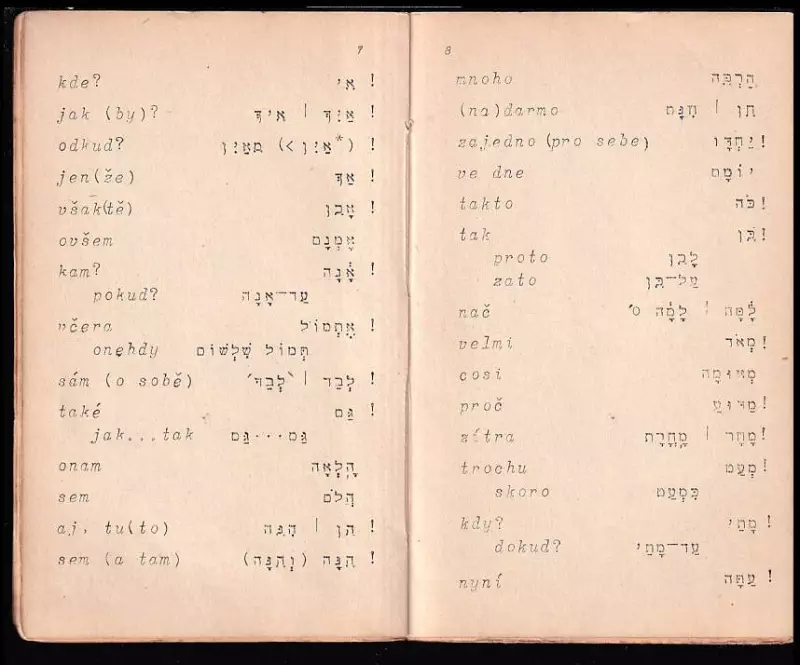 7
kde? אֵי !
jak (by)? אֵיךְ | אֵיךְ !
odkud? מֵאַיִן (< אַיִן*) !
jen(že) אַךְ !
však(tě) אָכֵן !
ovšem אָמְנָם
kam? אָנָה !
pokud? עַד־אָנָה
včera אֶתְמוֹל !
onehdy תְּמוֹל שִׁלְשׁוֹם
sám (o sobě) לְבַד | לְבַדּ՝ !
také גַּם !
jak...tak גַּם...גַּם
onam הָלְאָה
sem הֲלֹם
aj, tu(to) הֵן | הִנֵּה !
sem (a tam) הֵנָּה (וְהֵנָּה) !
8
mnoho הַרְבֵּה
(na)darmo חֵן | חִנָּם
zajedno (pro sebe) יַחְדָּו !
ve dne יוֹמָם
takto כֹּה !
tak כֵּן !
proto לָכֵן
zato עַל־כֵּן
nač לָמָּה | לָמָה
velmi מְאֹד !
cosi מְאוּמָה
proč מַדּוּעַ !
zítra מָחָר | מָחֳרָת !
trochu מְעַט !
skoro כִּמְעַט
kdy? מָתַי !
dokud? עַד־מָתַי
nyní עַתָּה !